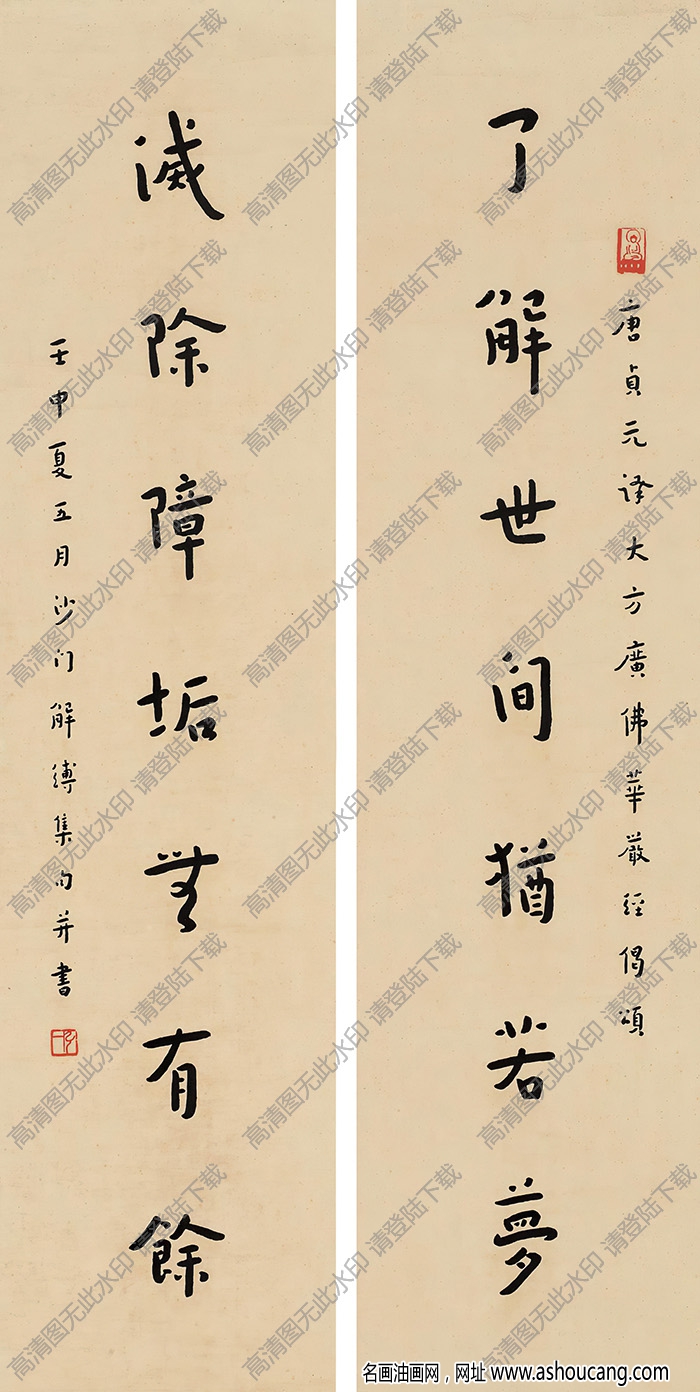 唐貞元譯大方廣佛華嚴經偈頌
了解世间猶若夢
滅除障垢無有餘
壬申夏五月沙门解縛集句并書
高清图无此水印 请登陆下载
名画油画网，网址 www.ashoucang.com